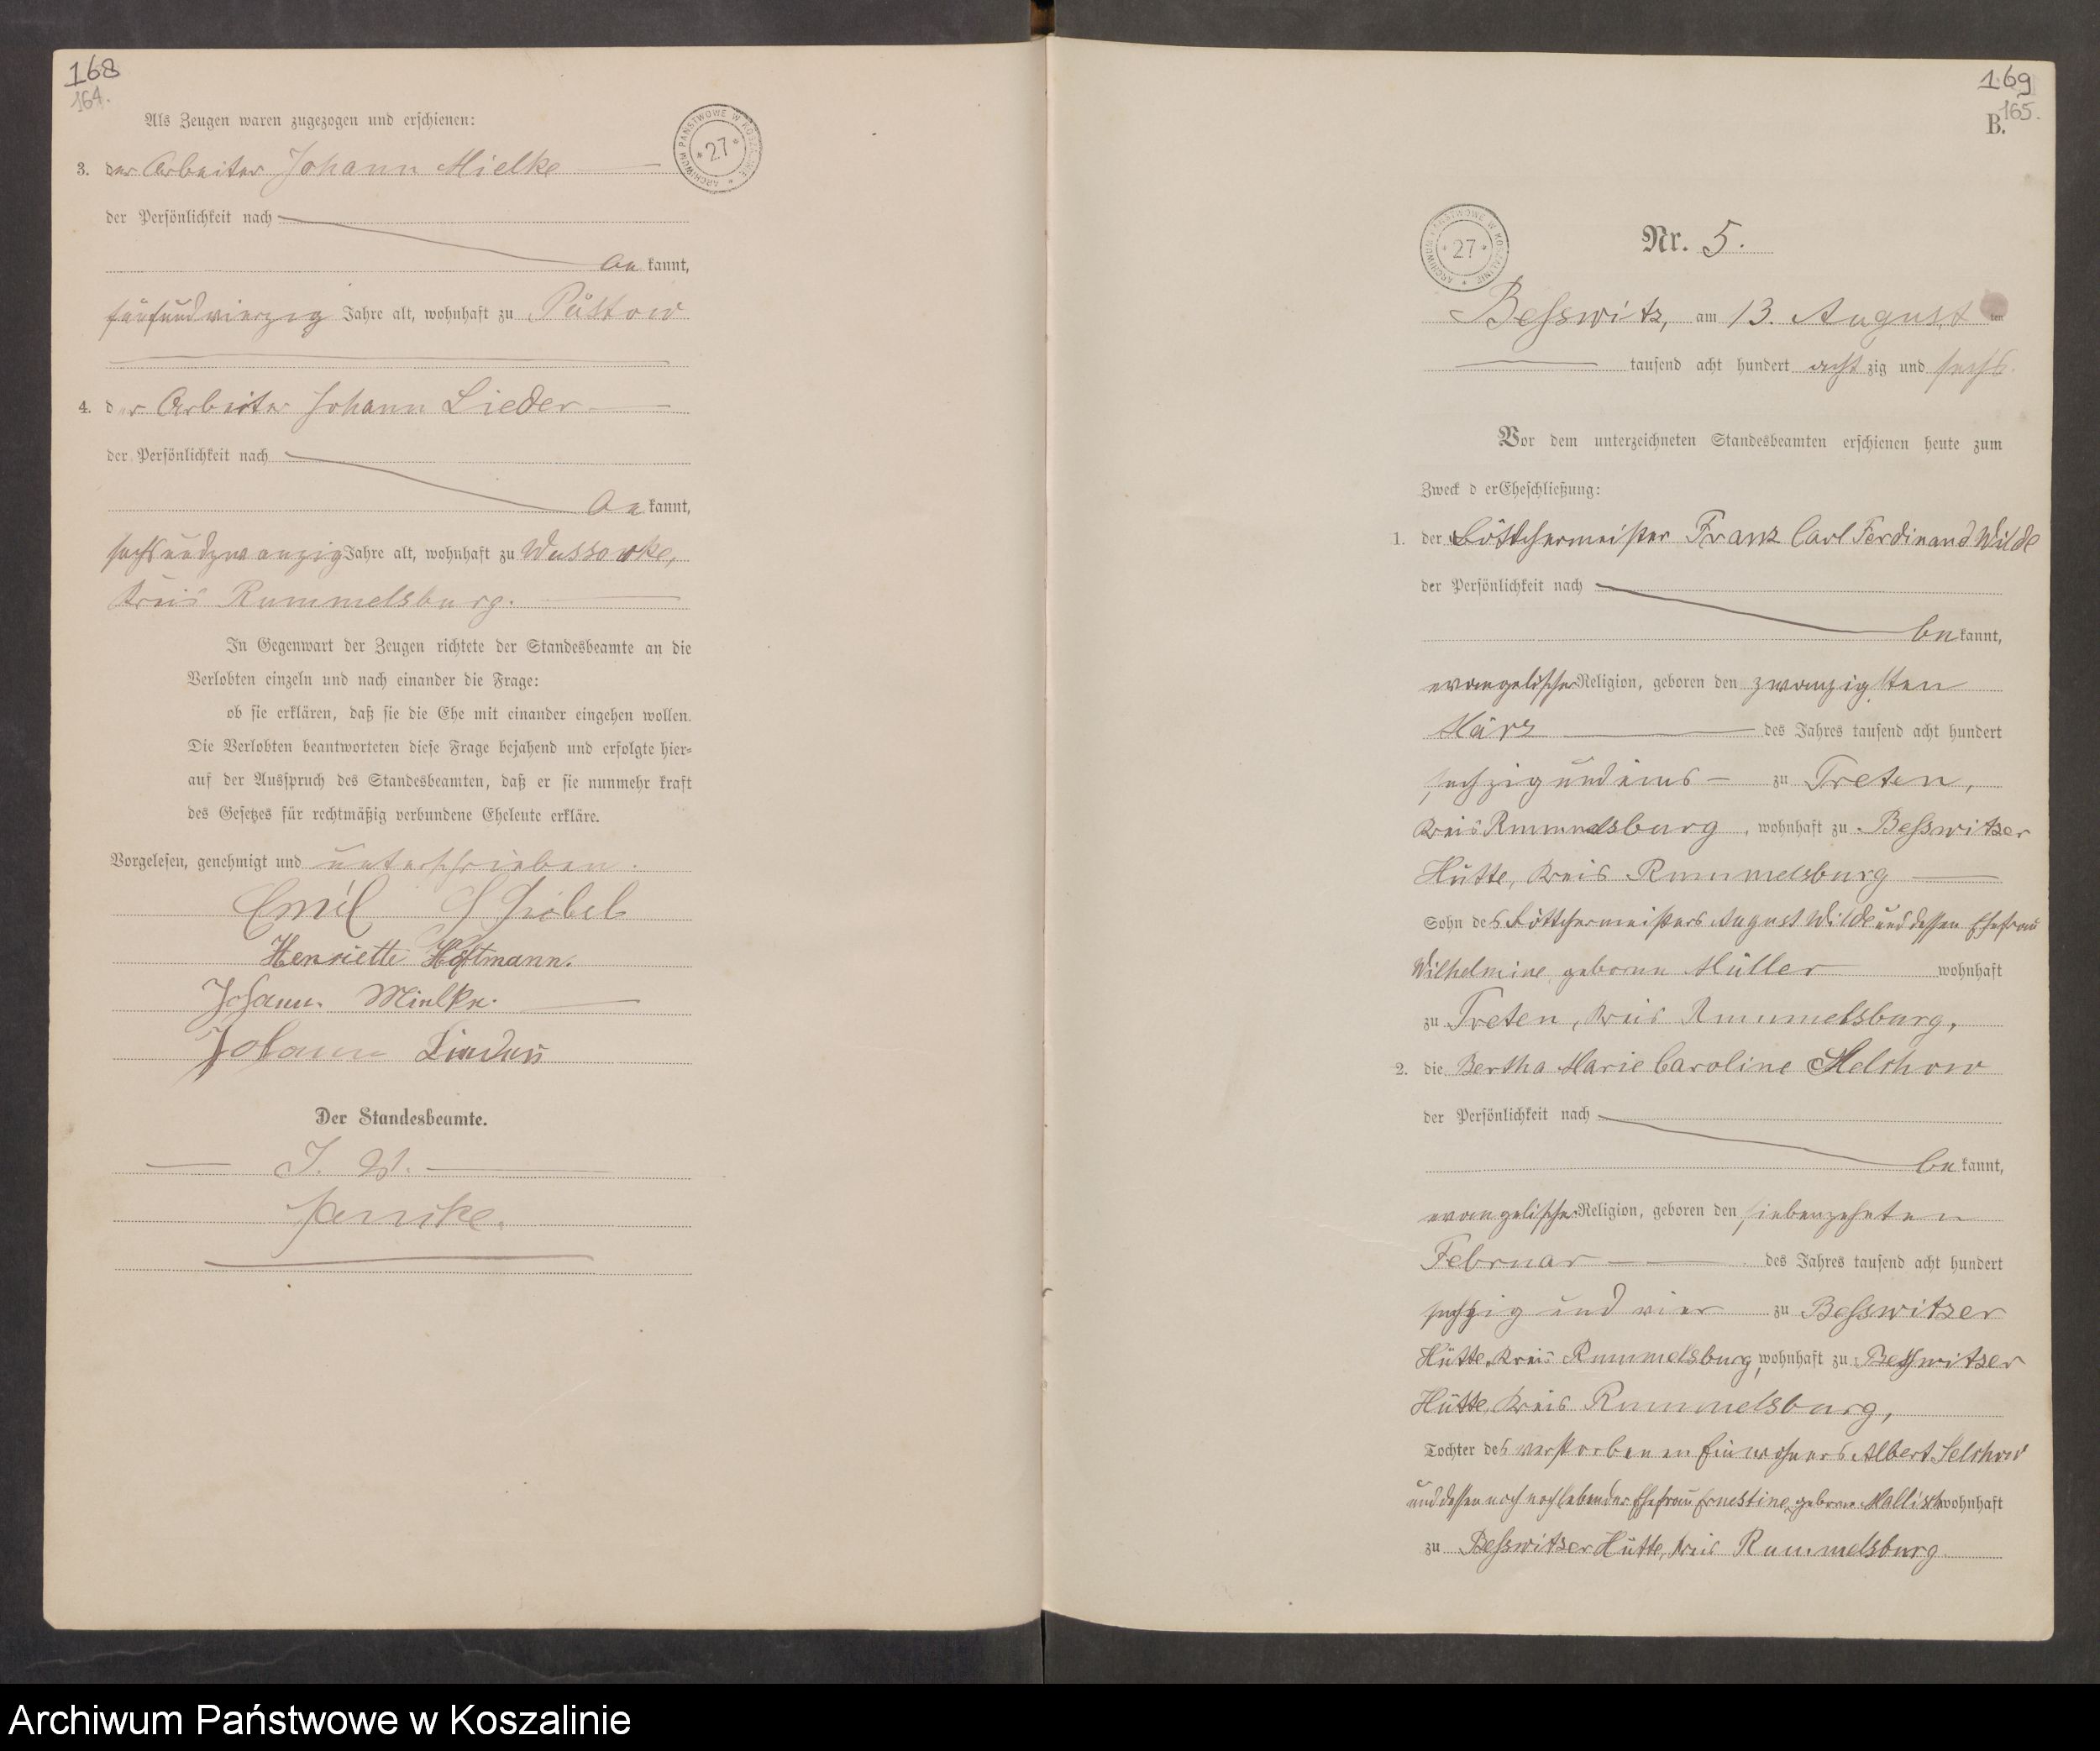 168
164.
Als Zeugen waren zugezogen und erschienen:
ARCHIWUM PAŃSTWOWE W KOSZALINIE
* 27 *
3. der Arbeiter Johann Mielke
der Persönlichkeit nach
be kannt,
fünfundvierzig Jahre alt, wohnhaft zu Püstow
4. der Arbeiter Johann Lieder
der Persönlichkeit nach
be kannt,
sechsundzwanzig Jahre alt, wohnhaft zu Wussowke,
Kreis Rummelsburg.
In Gegenwart der Zeugen richtete der Standesbeamte an die
Verlobten einzeln und nach einander die Frage:
ob sie erklären, daß sie die Ehe mit einander eingehen wollen.
Die Verlobten beantworteten diese Frage bejahend und erfolgte hier=
auf der Ausspruch des Standesbeamten, daß er sie nunmehr kraft
des Gesetzes für rechtmäßig verbundene Eheleute erkläre.
Vorgelesen, genehmigt und unterschrieben.
Emil
Henriette Hoftmann.
Johann Mielke.
Johann Lieder
Der Standesbeamte.
J. V.
169
165.
B.
ARCHIWUM PAŃSTWOWE W KOSZALINIE
* 27 *
Nr. 5.
Besswitz, am 13. August ten
tausend acht hundert acht zig und sechs.
Vor dem unterzeichneten Standesbeamten erschienen heute zum
Zweck d er Eheschließung:
1. der Böttchermeister Franz Carl Ferdinand Wilde
der Persönlichkeit nach
be kannt,
evangelischer Religion, geboren den zwanzigsten
März des Jahres tausend acht hundert
sechzig und eins zu Treten,
Kreis Rummelsburg, wohnhaft zu Besswitzer
Hütte, Kreis Rummelsburg
Sohn des Böttchermeisters August Wilde und dessen Ehefrau
Wilhelmine geborene Müller wohnhaft
zu Treten, Kreis Rummelsburg,
2. die Bertha Marie Caroline Selchow
der Persönlichkeit nach
be kannt,
evangelischer Religion, geboren den siebenzehnten
Februar des Jahres tausend acht hundert
sechzig und vier zu Besswitzer
Hütte, Kreis Rummelsburg, wohnhaft zu Besswitzer
Hütte, Kreis Rummelsburg,
Tochter des verstorbenen Einwohners Albert Selchow
und dessen noch lebender Ehefrau Ernestine, geborene wohnhaft
zu Besswitzer Hütte, Kreis Rummelsburg
Archiwum Państwowe w Koszalinie